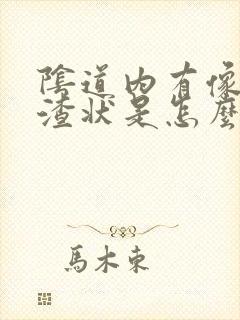 陰道內有像
渣狀是怎麼
馬木東